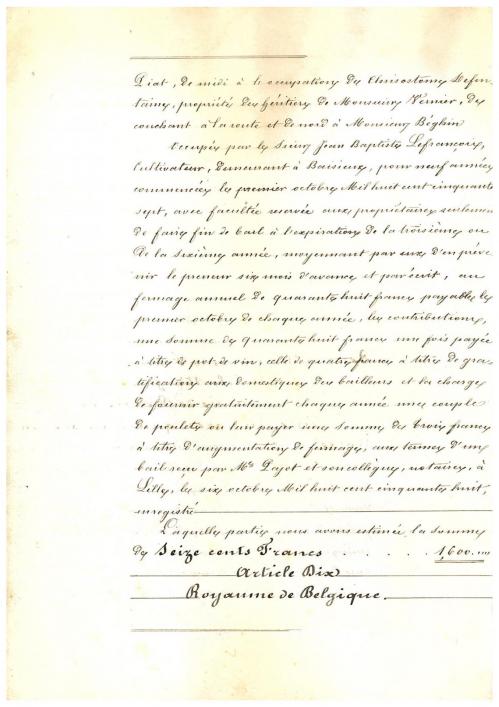 Piat, de midi à l'occupation de Chrisostome Defon-
taine, propriété des héritiers de Monsieur Vernier, du
couchant à la route et de nord à Monsieur Béghin
Occupée par le Sieur Jean Baptiste Lefrançois,
Cultivateur, demeurant à Baisieux, pour neuf années
commencées le premier octobre Mil huit cent cinquante
sept, avec faculté reservée aux propriétaires seulement
de faire fin de bail à l'expiration de la troisième ou
de la sixième année, moyennant par eux d'en préve
nir le preneur six mois d'avance et par écrit, au
fermage annuel de quarante huit francs payable le
premier octobre de chaque année, les contributions,
une somme de quarante huit francs une fois payée
à titre de pot de vin, celle de quatre francs à titre de gra-
tification aux domestiques des bailleurs et la charge
de fournir gratuitement chaque année une couple
de poulets ou leur payer une somme de trois francs
à titre d'augmentation de fermage, aux termes d'un
bail reçu par Me Pajot et son collègue, notaires, à
Lille, le six octobre Mil huit cent cinquante huit,
enregistré
Laquelle partie nous avons estimée la somme
de Seize cents Francs . . . . . 1,600.
Article Dix
Royaume de Belgique.